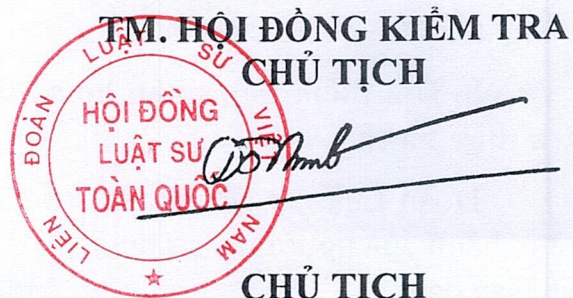 TM. HỘI ĐỒNG KIỂM TRA
CHỦ TỊCH
LIÊN ĐOÀN LUẬT SƯ VIỆT NAM
HỘI ĐỒNG
LUẬT SƯ
TOÀN QUỐC
CHỦ TỊCH